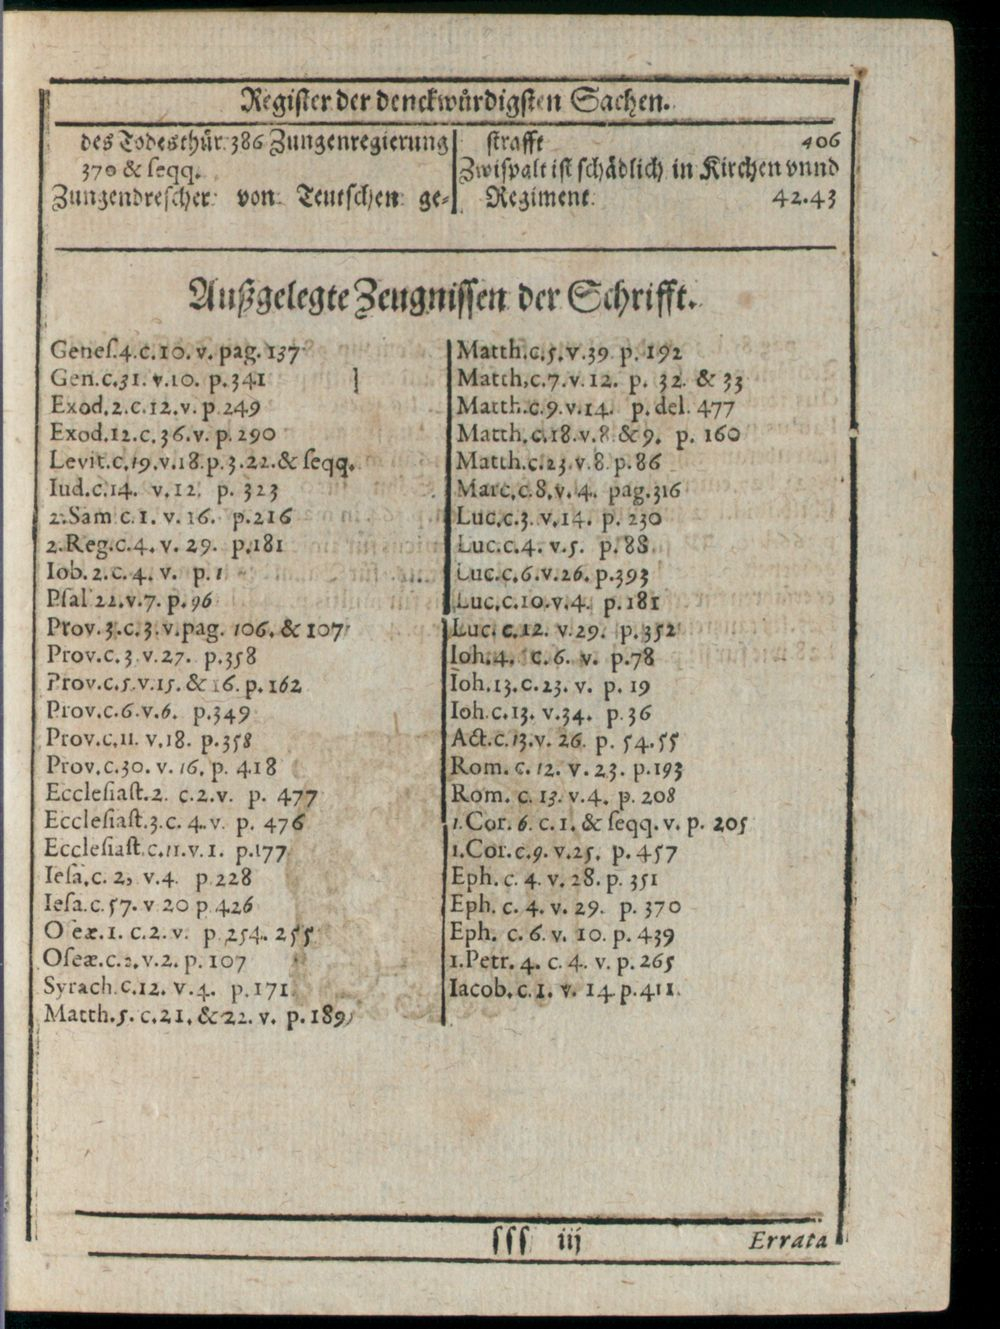 Register der denckwürdigsten Sachen.
des Todesthür. 386 Zungenregierung
370 & seqq.
Zungendrescher von Teutschen ge-
strafft 406
Zwispalt ist schädlich in Kirchen vnnd
Regiment. 42.43
Außgelegte Zeugnissen der Schrifft.
Genes.4.c.10.v. pag.137
Gen.c.31. v.10. p.341
Exod.2.c.12.v. p 249
Exod.12.c.36.v. p.290
Levit.c.19.v.18.p.3.22.& seqq.
Iud.c.14. v.12. p. 323
2.Sam c.1. v.16. p.216
2.Reg.c.4. v. 29. p.181
Iob.2.c.4. v. p.1
Psal 22.v.7. p.96
Prov.3.c.3.v.pag. 106. & 107
Prov.c.3 v.27. p.358
Prov.c.5.v.15. & 16. p. 162
Prov.c.6.v.6. p.349
Prov.c.11. v.18. p.358
Prov.c.30. v.16. p. 418
Ecclesiast.2. c.2.v. p. 477
Ecclesiast.3.c.4.v. p. 476
Ecclesiast.c.11.v.1. p.177
Iesa.c. 2, v.4. p 228
Iesa.c.57. v 20 p 426
O eæ.1. c.2.v. p 254. 255
Oseæ.c.2.v.2. p. 107
Syrach.c.12. v.4. p.171
Matth.5. c.21. & 22. v. p.189
Matth.c.5.v.39 p. 192
Matth.c.7.v.12. p. 32. & 33
Matth.c.9.v.14. p. del. 477
Matth.c.18.v.8 & 9. p. 160
Matth.c.23.v.8. p.86
Marc.c.8.v.4. pag.316
Luc.c.3. v.14. p. 230
Luc.c.4. v.5. p.88
Luc.c.6.v.26. p.393
Luc.c.10.v.4. p.181
Luc. c.12. v.29. p.352
Ioh.4. c.6. v. p.78
Ioh.13.c.23. v. p. 19
Ioh.c.13. v.34. p.36
Act.c.13.v. 26. p. 54.55
Rom. c. 12. v. 23. p.193
Rom. c. 13. v.4. p. 208
1.Cor. 6. c.1. & seqq. v. p. 205
1.Cor.c.9. v.25. p. 457
Eph. c. 4. v. 28. p. 351
Eph. c. 4. v. 29. p. 370
Eph. c. 6. v. 10. p. 439
1.Petr. 4. c. 4. v. p. 265
Iacob. c. 1. v. 14. p.411.
sss iij Errata